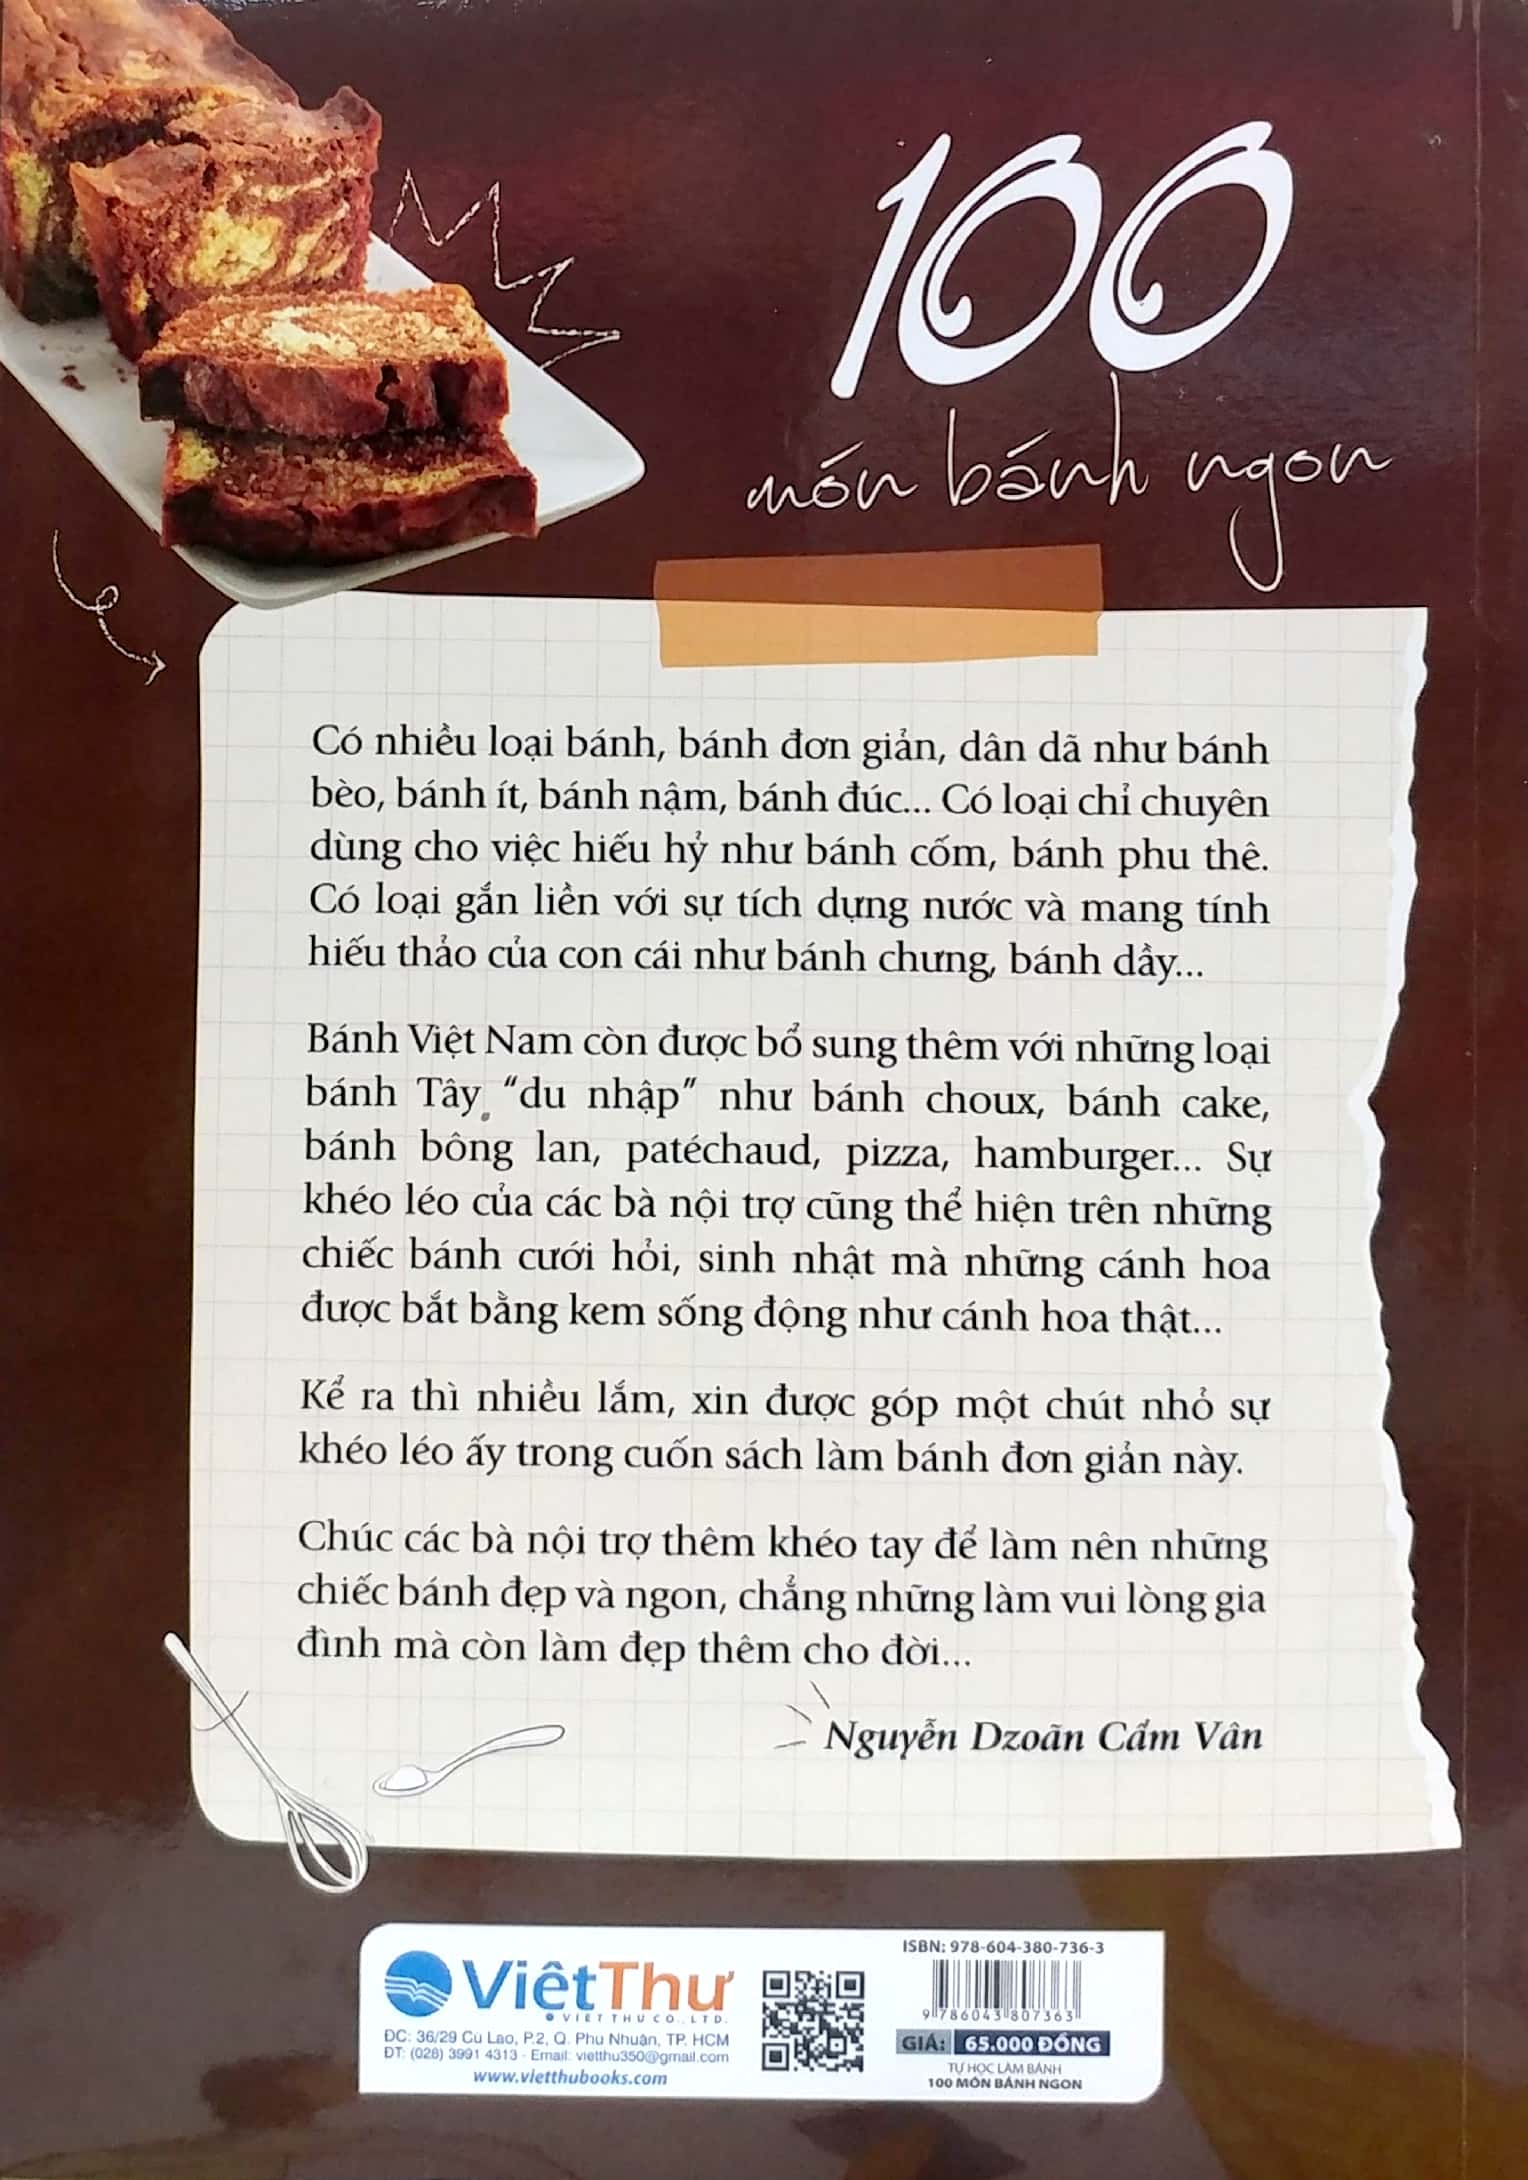 100
món bánh ngon
Có nhiều loại bánh, bánh đơn giản, dân dã như bánh
bèo, bánh ít, bánh nậm, bánh đúc... Có loại chỉ chuyên
dùng cho việc hiếu hỷ như bánh cốm, bánh phu thê.
Có loại gắn liền với sự tích dựng nước và mang tính
hiếu thảo của con cái như bánh chưng, bánh dầy...
Bánh Việt Nam còn được bổ sung thêm với những loại
bánh Tây "du nhập" như bánh choux, bánh cake,
bánh bông lan, patéchaud, pizza, hamburger... Sự
khéo léo của các bà nội trợ cũng thể hiện trên những
chiếc bánh cưới hỏi, sinh nhật mà những cánh hoa
được bắt bằng kem sống động như cánh hoa thật...
Kể ra thì nhiều lắm, xin được góp một chút nhỏ sự
khéo léo ấy trong cuốn sách làm bánh đơn giản này.
Chúc các bà nội trợ thêm khéo tay để làm nên những
chiếc bánh đẹp và ngon, chẳng những làm vui lòng gia
đình mà còn làm đẹp thêm cho đời...
Nguyễn Dzoãn Cẩm Vân
ViệtThư
VIET THU CO., LTD.
ĐC: 36/29 Cù Lao, P.2, Q. Phú Nhuận, TP. HCM
ĐT: (028) 3991 4313 - Email: vietthu350@gmail.com
www.vietthubooks.com
ISBN: 978-604-380-736-3
9 786043 807363
GIÁ: 65.000 ĐỒNG
TỰ HỌC LÀM BÁNH
100 MÓN BÁNH NGON